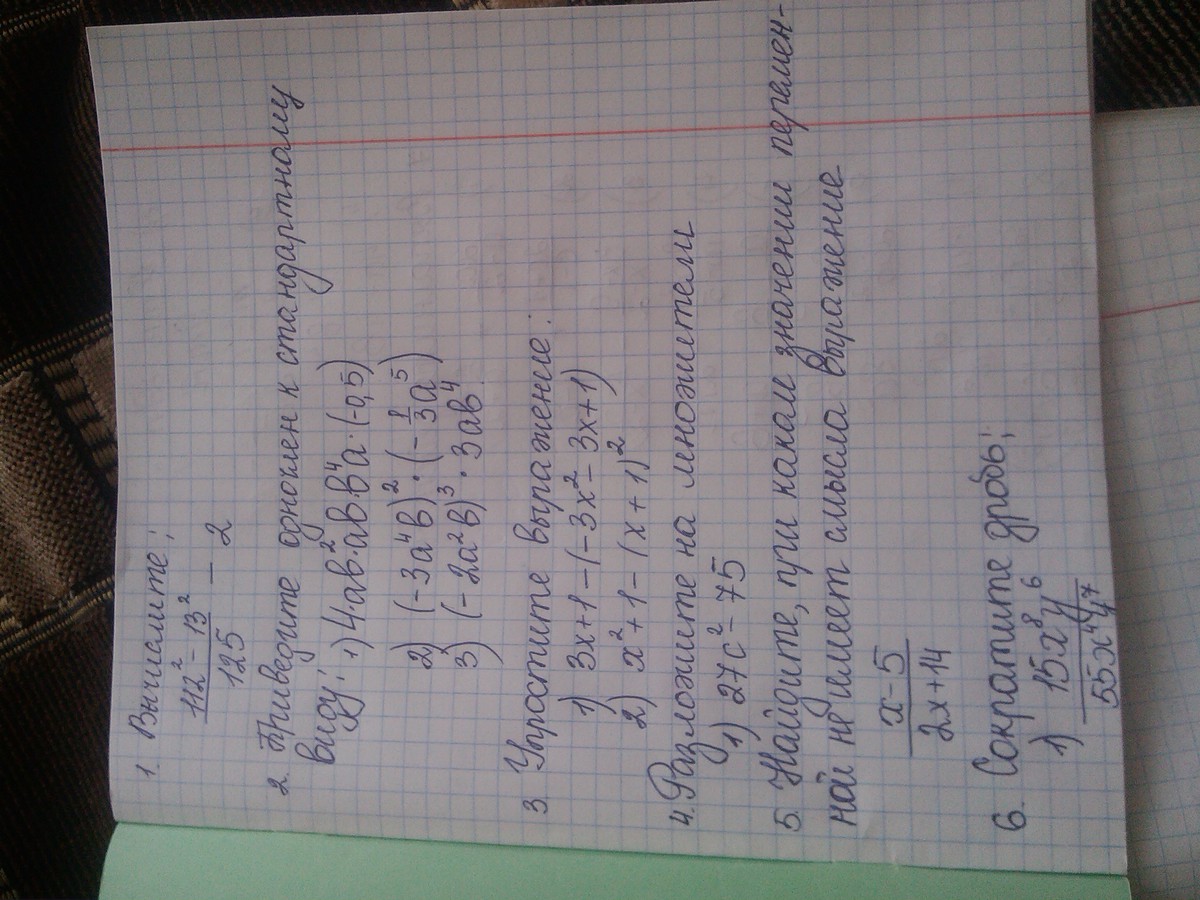 1. Вычислите:
(112² - 13²)/125 - 2
2. Приведите одночлен к стандартному
виду: 1) 4·ab²·abb⁴a·(-0,5)
2) (-3a⁴b)²·(-1/3a⁵)
3) (-2a²b)³·3ab⁴
3. Упростите выражение:
1) 3x+1-(-3x²-3x+1)
2) x²+1-(x+1)²
4. Разложите на множители
1) 27c²-75
5. Найдите, при каком значении перемен-
ной не имеет смысла выражение
(x-5)/(2x+14)
6. Сократите дробь:
1) 15x⁸y⁶/55x⁴y⁷